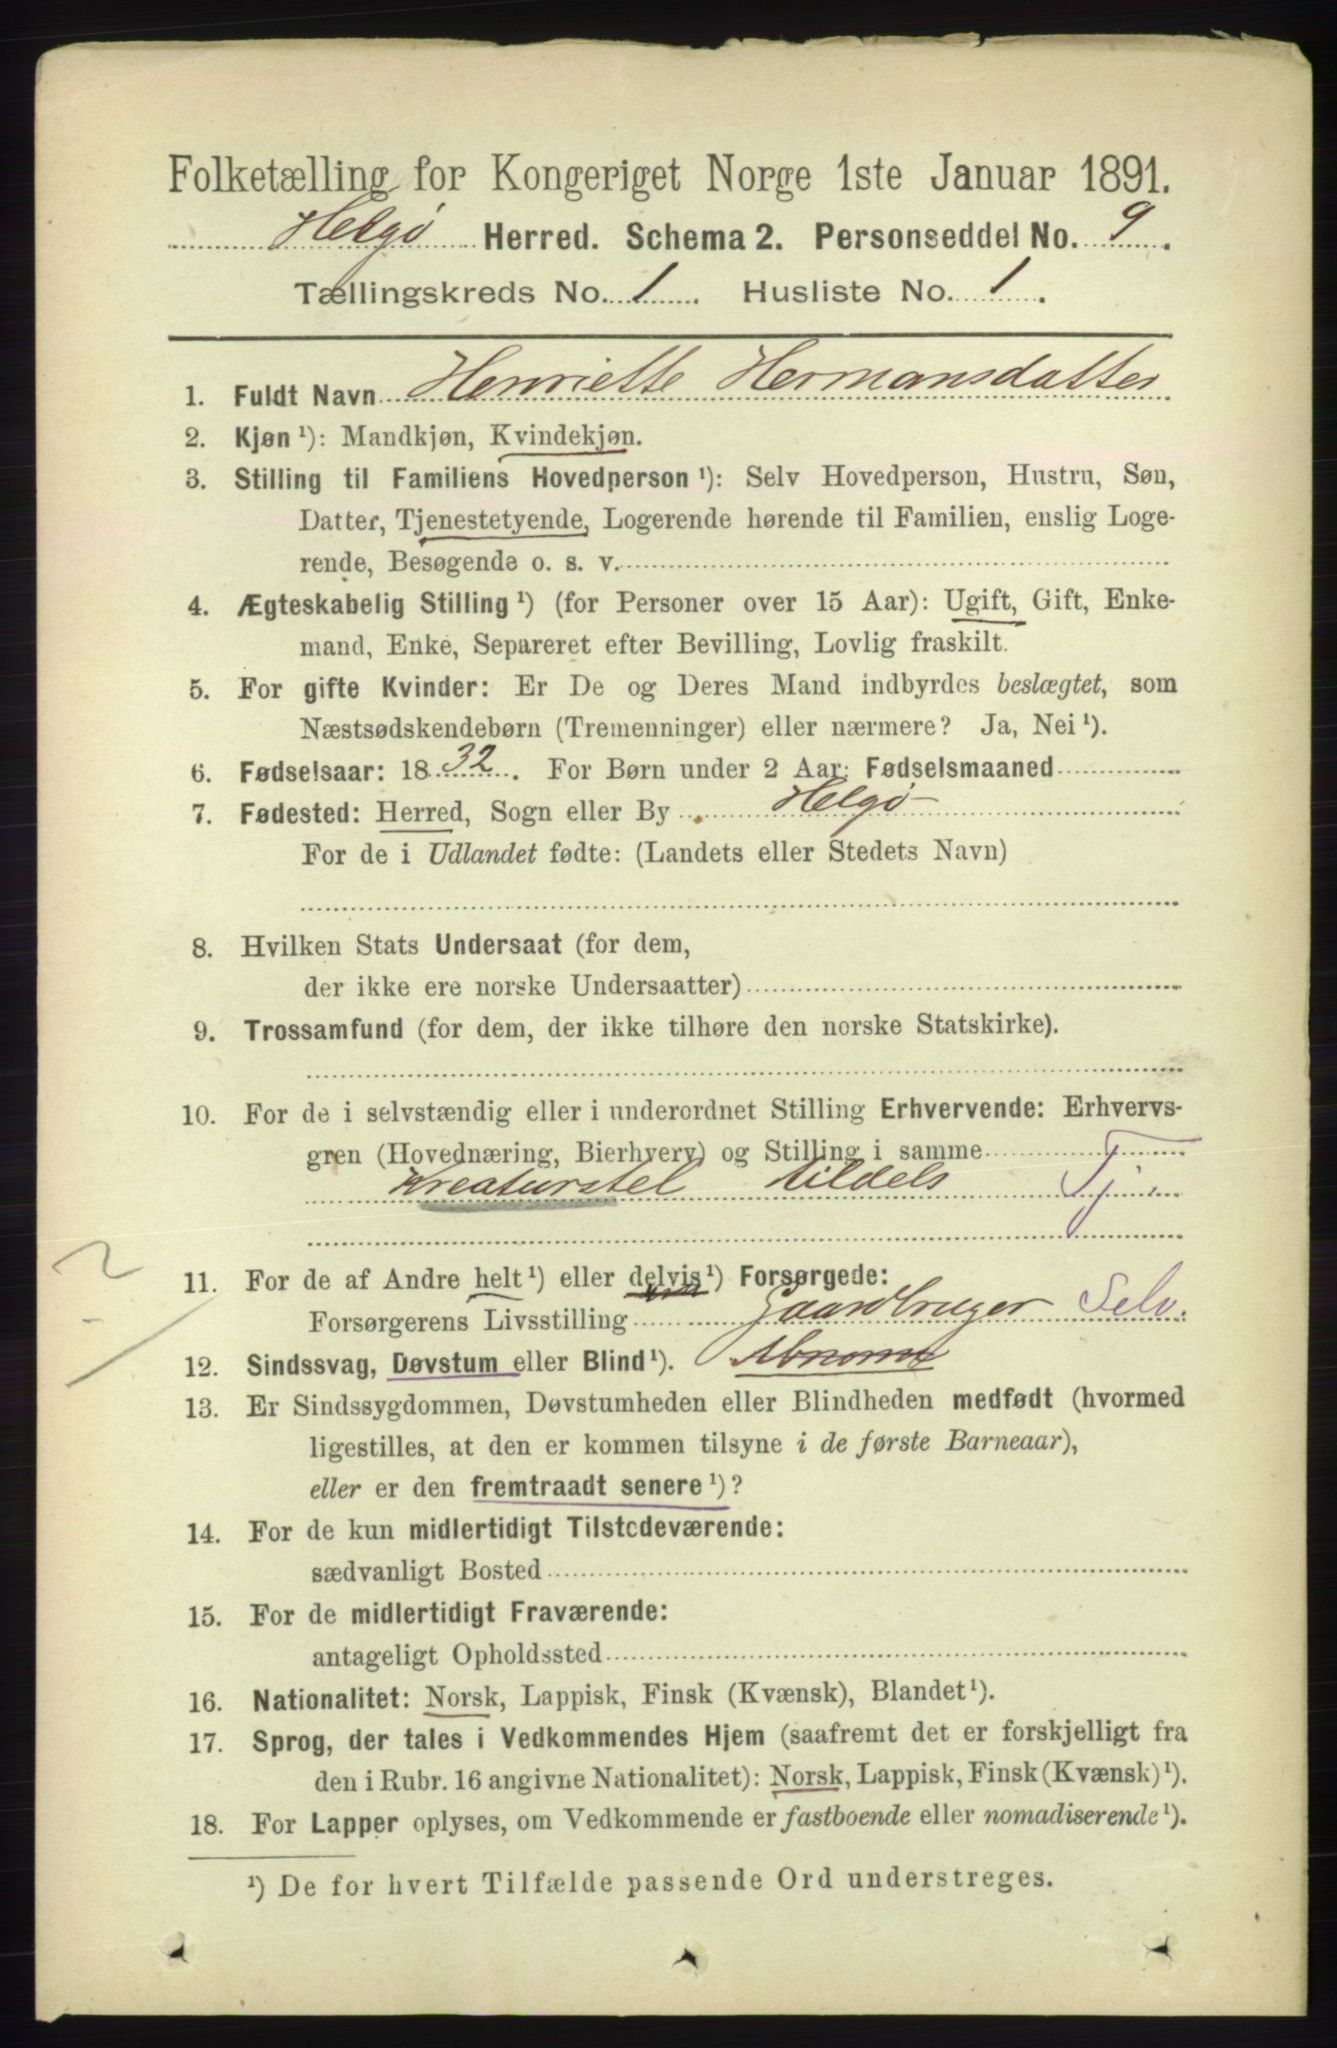 Folketælling for Kongeriget Norge 1ste Januar 1891.
Helgø Herred. Schema 2. Personseddel No. 9.
Tællingskreds No. 1. Husliste No. 1.
1. Fuldt Navn Henriette Hermansdatter
2. Kjøn ¹): Mandkjøn, Kvindekjøn.
3. Stilling til Familiens Hovedperson ¹): Selv Hovedperson, Hustru, Søn,
Datter, Tjenestetyende, Logerende hørende til Familien, enslig Loge-
rende, Besøgende o. s. v.
4. Ægteskabelig Stilling ¹) (for Personer over 15 Aar): Ugift, Gift, Enke-
mand, Enke, Separeret efter Bevilling, Lovlig fraskilt.
5. For gifte Kvinder: Er De og Deres Mand indbyrdes beslægtet, som
Næstsødskendebørn (Tremenninger) eller nærmere? Ja, Nei ¹).
6. Fødselsaar: 1832. For Børn under 2 Aar: Fødselsmaaned
7. Fødested: Herred, Sogn eller By Helgø
For de i Udlandet fødte: (Landets eller Stedets Navn)
8. Hvilken Stats Undersaat (for dem,
der ikke ere norske Undersaatter)
9. Trossamfund (for dem, der ikke tilhøre den norske Statskirke).
10. For de i selvstændig eller i underordnet Stilling Erhvervende: Erhvervs-
gren (Hovednæring, Bierhverv) og Stilling i samme
Kreaturstel tildels Tj.
11. For de af Andre helt ¹) eller delvis ¹) Forsørgede:
Forsørgerens Livsstilling Gaardbruger Selv.
12. Sindssvag, Døvstum eller Blind ¹).
13. Er Sindssygdommen, Døvstumheden eller Blindheden medfødt (hvormed
ligestilles, at den er kommen tilsyne i de første Barneaar),
eller er den fremtraadt senere ¹)?
14. For de kun midlertidigt Tilstedeværende:
sædvanligt Bosted
15. For de midlertidigt Fraværende:
antageligt Opholdssted
16. Nationalitet: Norsk, Lappisk, Finsk (Kvænsk), Blandet ¹).
17. Sprog, der tales i Vedkommendes Hjem (saafremt det er forskjelligt fra
den i Rubr. 16 angivne Nationalitet): Norsk, Lappisk, Finsk (Kvænsk) ¹).
18. For Lapper oplyses, om Vedkommende er fastboende eller nomadiserende ¹).
¹) De for hvert Tilfælde passende Ord understreges.